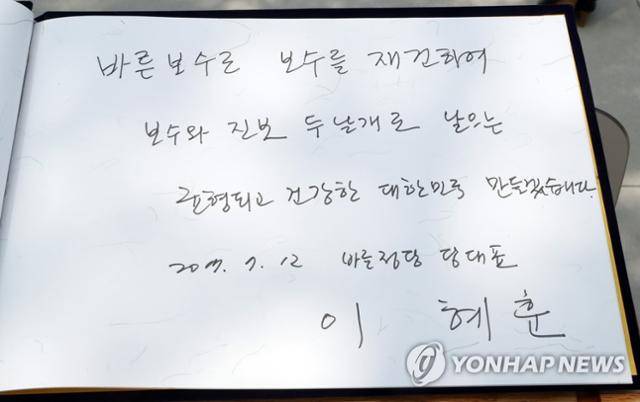 바른보수로 보수를 재건하여
보수와 진보 두날개로 날으는
균형되고 건강한 대한민국 만들겠습니다.
2017. 7. 12 바른정당 당대표
이 혜훈
YONHAP NEWS